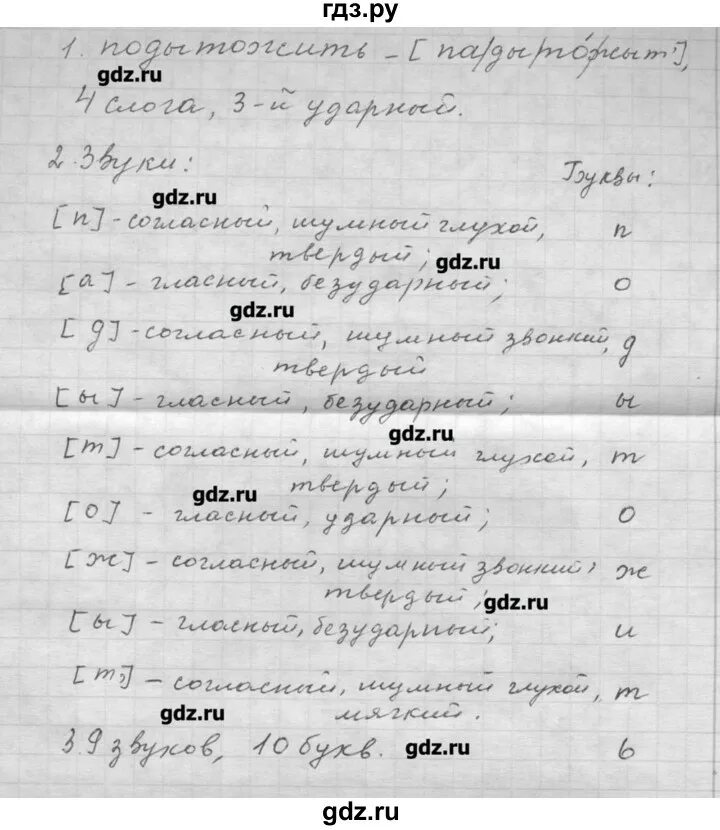 гдз.ру
1. подытожить – [па/ды/то́/жыт'],
gdz.ru
4 слога, 3-й ударный.
2. Звуки:
Буквы:
gdz.ru
[п] - согласный, шумный глухой, п
твердый; gdz.ru
[а] - гласный, безударный; о
gdz.ru
[д] - согласный, шумный звонкий, д
твердый
[ы] - гласный, безударный; ы
gdz.ru
[т] - согласный, шумный глухой, т
твердый;
gdz.ru
[о] - гласный, ударный; о
[ж] - согласный, шумный звонкий, ж
твердый; gdz.ru
[ы] - гласный, безударный; и
[т,] - согласный, шумный глухой, т
gdz.ru мягкий.
3. 9 звуков, 10 букв. gdz.ru ь
gdz.ru